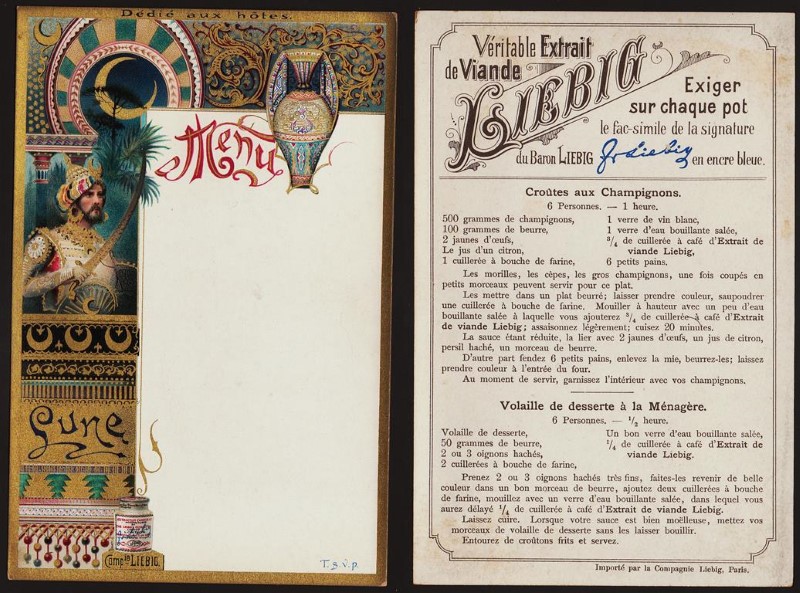 Dédié aux hôtes.
Menu
Lune
Comp^ie LIEBIG.
T. S. V. P.
Véritable Extrait
de Viande
LIEBIG
Exiger
sur chaque pot
le fac-simile de la signature
du Baron LIEBIG JvLiebig en encre bleue.
Croûtes aux Champignons.
6 Personnes. — 1 heure.
500 grammes de champignons,
100 grammes de beurre,
2 jaunes d'œufs,
Le jus d'un citron,
1 cuillerée à bouche de farine,
1 verre de vin blanc,
1 verre d'eau bouillante salée,
3/4 de cuillerée à café d'Extrait de
viande Liebig,
6 petits pains.
Les morilles, les cèpes, les gros champignons, une fois coupés en
petits morceaux peuvent servir pour ce plat.
Les mettre dans un plat beurré; laisser prendre couleur, saupoudrer
une cuillerée à bouche de farine. Mouiller à hauteur avec un peu d'eau
bouillante salée à laquelle vous ajouterez 3/4 de cuillerée à café d'Extrait
de viande Liebig; assaisonnez légèrement; cuisez 20 minutes.
La sauce étant réduite, la lier avec 2 jaunes d'œufs, un jus de citron,
persil haché, un morceau de beurre.
D'autre part fendez 6 petits pains, enlevez la mie, beurrez-les; laissez
prendre couleur à l'entrée du four.
Au moment de servir, garnissez l'intérieur avec vos champignons.
Volaille de desserte à la Ménagère.
6 Personnes. — 1/2 heure.
Volaille de desserte,
50 grammes de beurre,
2 ou 3 oignons hachés,
2 cuillerées à bouche de farine,
Un bon verre d'eau bouillante salée,
1/4 de cuillerée à café d'Extrait de
viande Liebig.
Prenez 2 ou 3 oignons hachés très fins, faites-les revenir de belle
couleur dans un bon morceau de beurre, ajoutez deux cuillerées à bouche
de farine, mouillez avec un verre d'eau bouillante salée, dans lequel vous
aurez délayé 1/4 de cuillerée à café d'Extrait de viande Liebig.
Laissez cuire. Lorsque votre sauce est bien moëlleuse, mettez vos
morceaux de volaille de desserte sans les laisser bouillir.
Entourez de croûtons frits et servez.
Importé par la Compagnie Liebig, Paris.